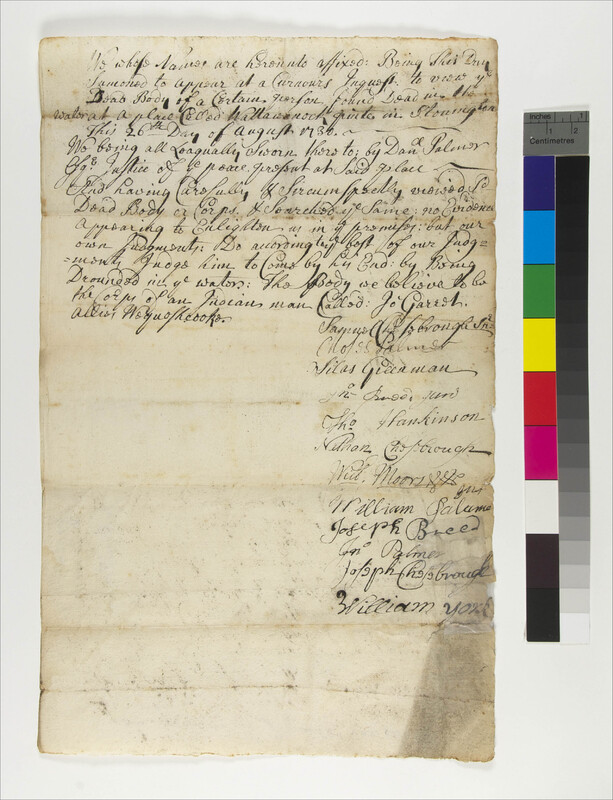 We whose Names are hereunto affixed: Being This Day
Sumoned to Appear at a Curnours Inquest: to view ye
Dead Body of a Certain person found Dead in the
water at a place Called Wattawanock point in Stonington
This 26th Day of August 1736.
We being all Leagually Sworn there to; by Danl. Palmer
Esqr. Justice of ye peace present at Said place
And having Carefully & Sircumspectly viewed sd
Dead Body or Corps, & Searched ye Same: no Evidence
Appearing to Enlighten us in ye premises: but our
own Judgments: Do according to ye best of our Judg=
=ments Judge him to Come by his End: by Being
Drounded in ye waters: the Body we believe to be
the corps of an Indian man Called: Jo Garret.
Allies
Chesebrough
Palmer
Silas Greenman
Breed
Tho Hankinson
Nathan Chesbrough
Will. Moors
William
Joseph Breed
Jno Palmer
Joseph Chesebrough
William York
Inches 1 2
Centimetres